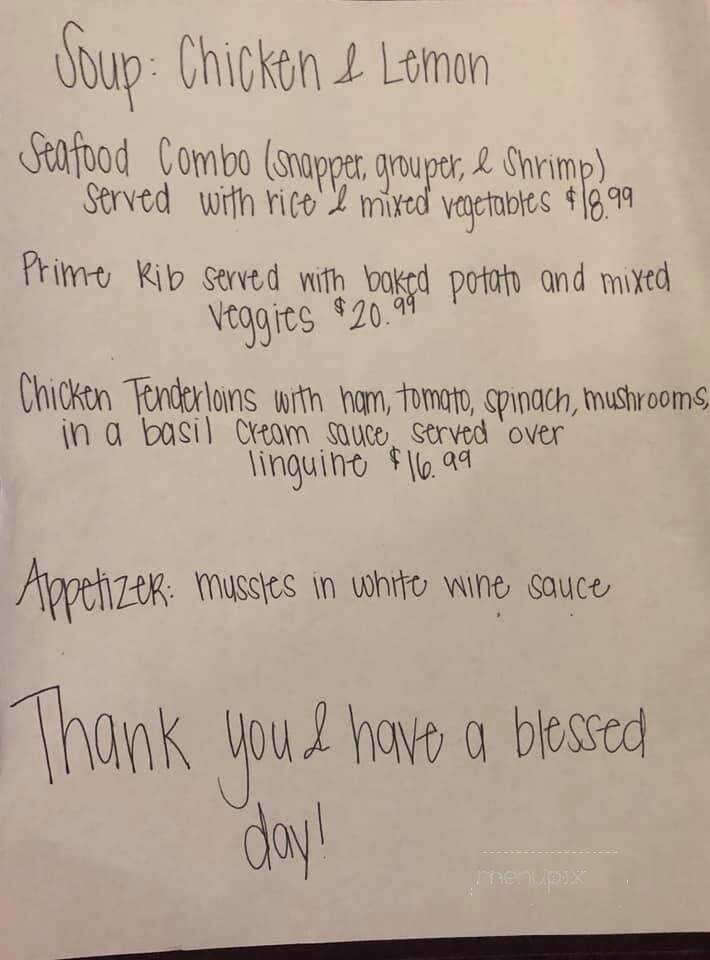 Soup: Chicken & Lemon
Seafood Combo (snapper, grouper, & Shrimp)
served with rice & mixed vegetables $18.99
Prime Rib served with baked potato and mixed
veggies $20.99
Chicken Tenderloins with ham, tomato, spinach, mushrooms,
in a basil cream sauce served over
linguine $16.99
Appetizer: mussles in white wine sauce
Thank you & have a blessed
day!
menupix